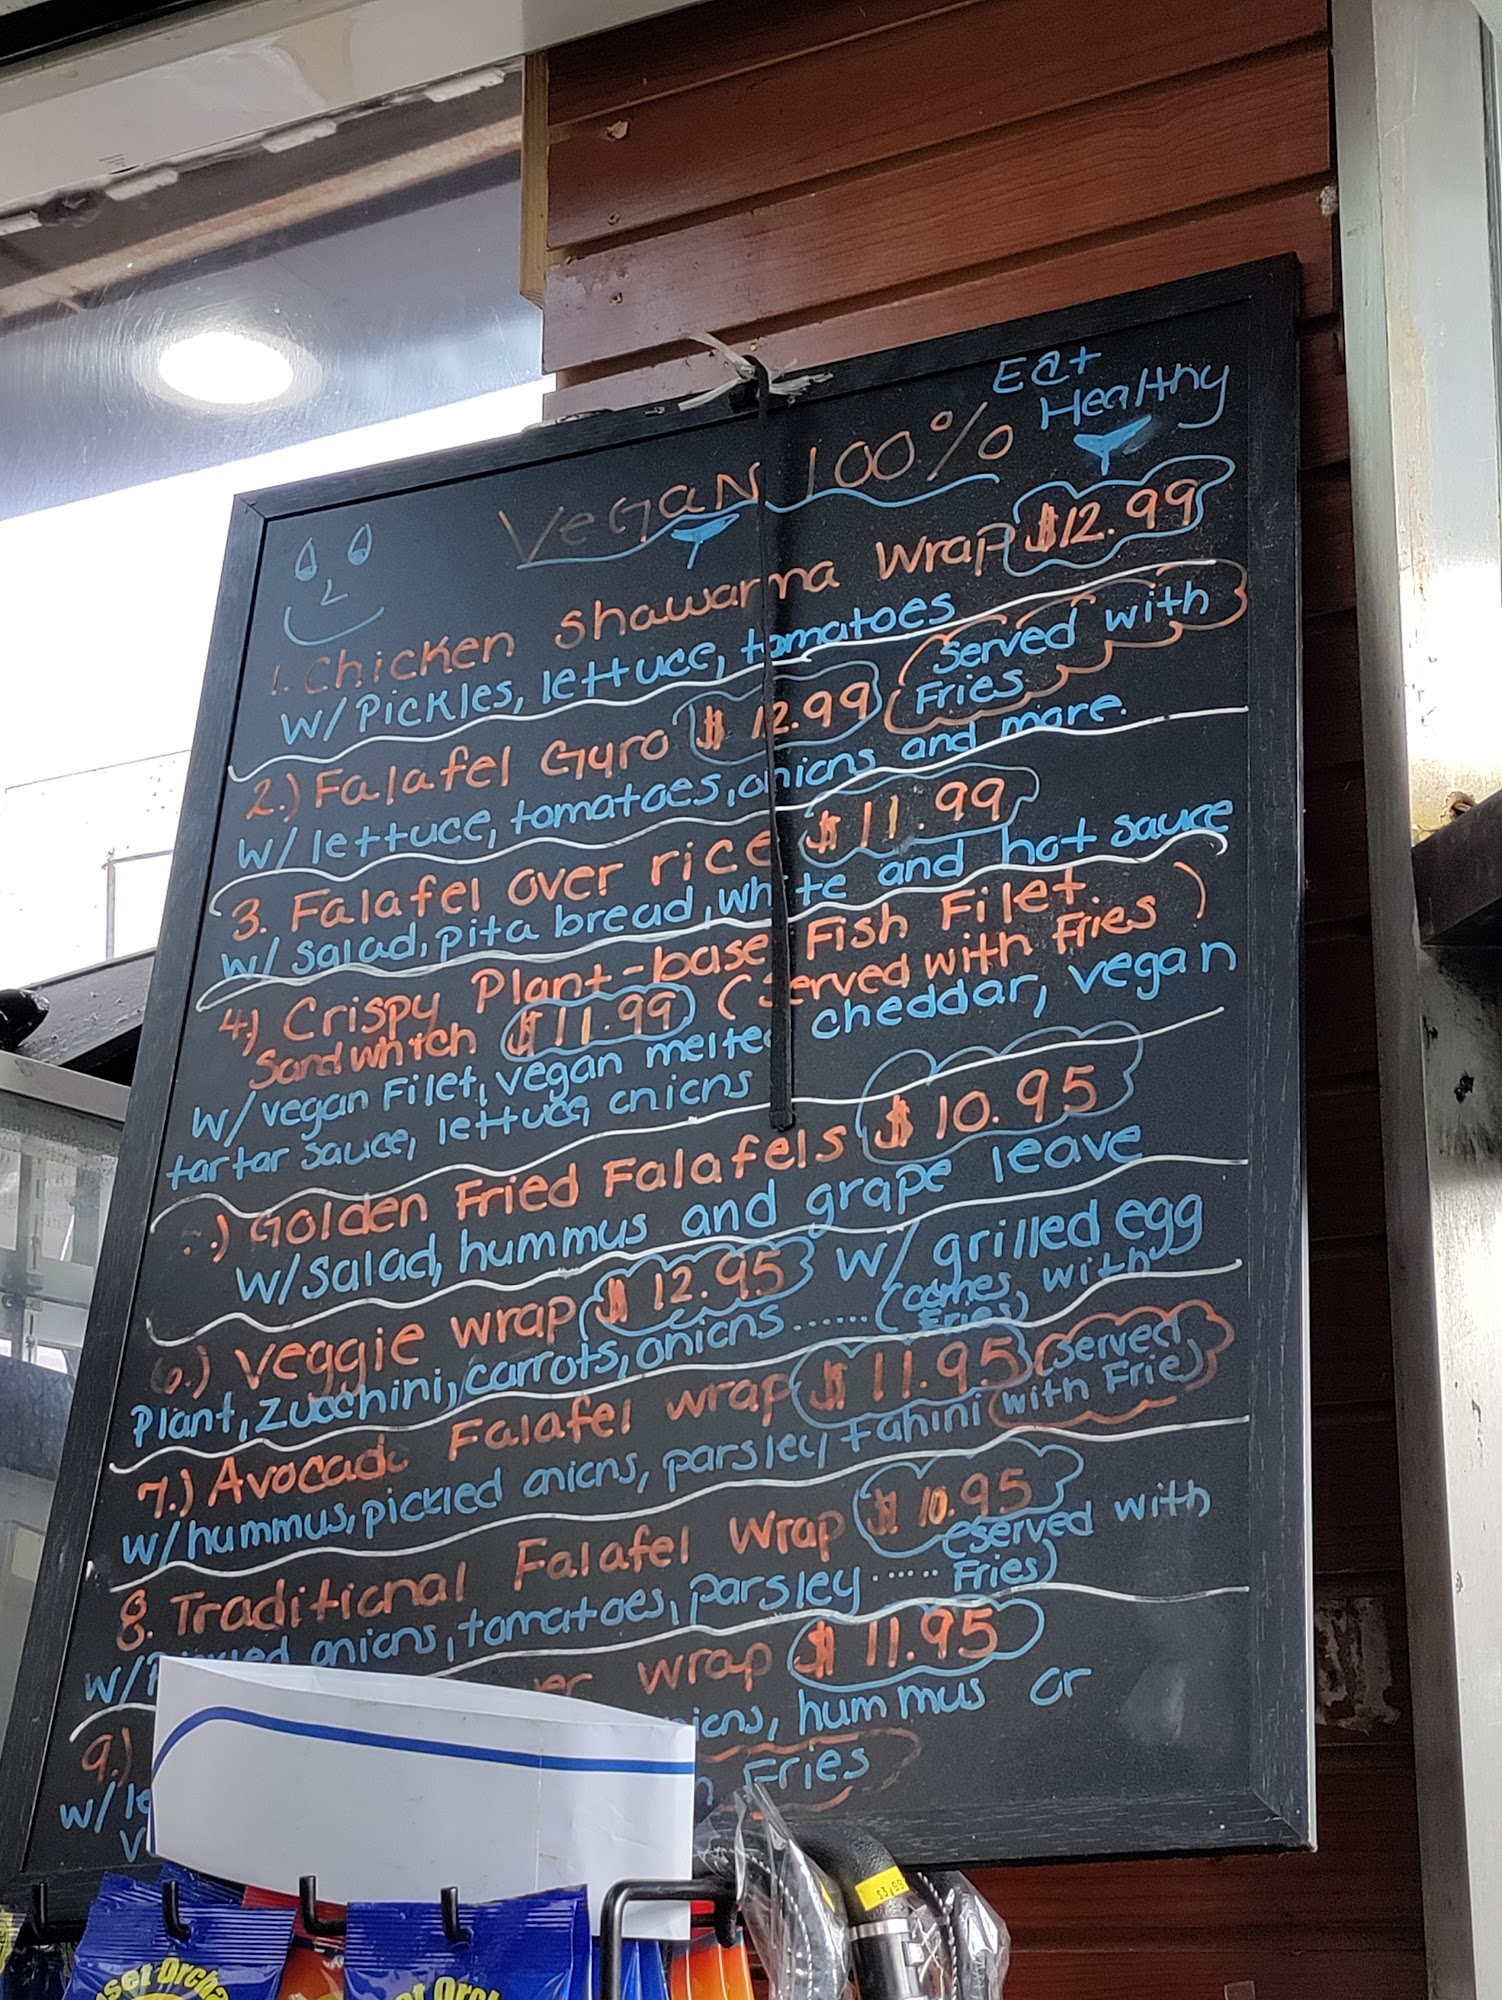 Eat
Healthy
VeGaN 100%
1. Chicken Shawarma Wrap $12.99
W/ Pickles, lettuce, tomatoes
2.) Falafel Gyro $ 12.99 (Served with
Fries
W/ lettuce, tomatoes, onions and more.
3. Falafel over rice $11.99
W/ Salad, pita bread, white and hot sauce
4.) Crispy Plant-base Fish Filet
Sandwhich $11.99 (Served with Fries)
W/ vegan Filet, vegan melted cheddar, vegan
tartar sauce, lettuce, onions
.) Golden Fried Falafels $ 10.95
W/ Salad, hummus and grape leave
6.) Veggie wrap $ 12.95 W/ grilled egg
Plant, zucchini, carrots, onions ...... (comes with
Fries)
7.) Avocado Falafel wrap $ 11.95 (served
W/ hummus, pickled onions, parsley tahini with Frie)
8. Traditional Falafel Wrap $ 10.95
W/ Pickled onions, tomatoes, parsley ...... (served with
Fries)
9.) wrap $ 11.95
W/ hummus or
Fries
$3.99